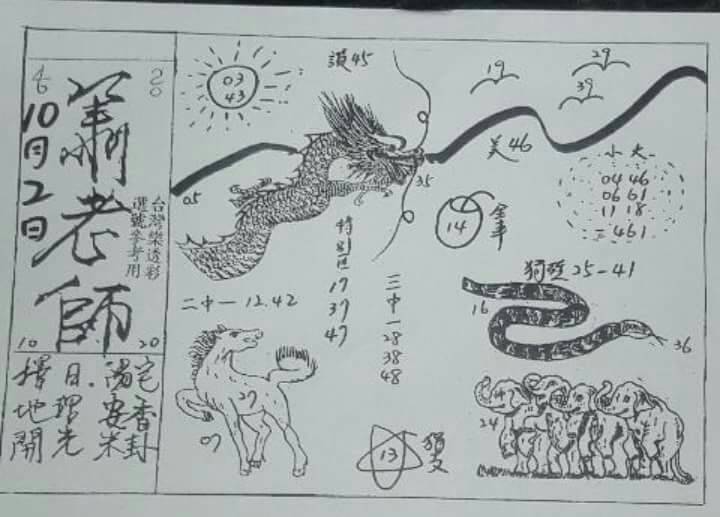 46
20
10月2日
蕭老師
台灣樂透彩
選號參考用
10
20
擇日.陽宅
地理安香
開光米卦
03
43
讚45
19
29
39
美46
05
35
小 大
04 46
06 61
11 18
=461
14
全車
特別區
17
37
47
三中一
28
38
48
二中一12.42
獨壹25-41
16
36
07
27
13
24